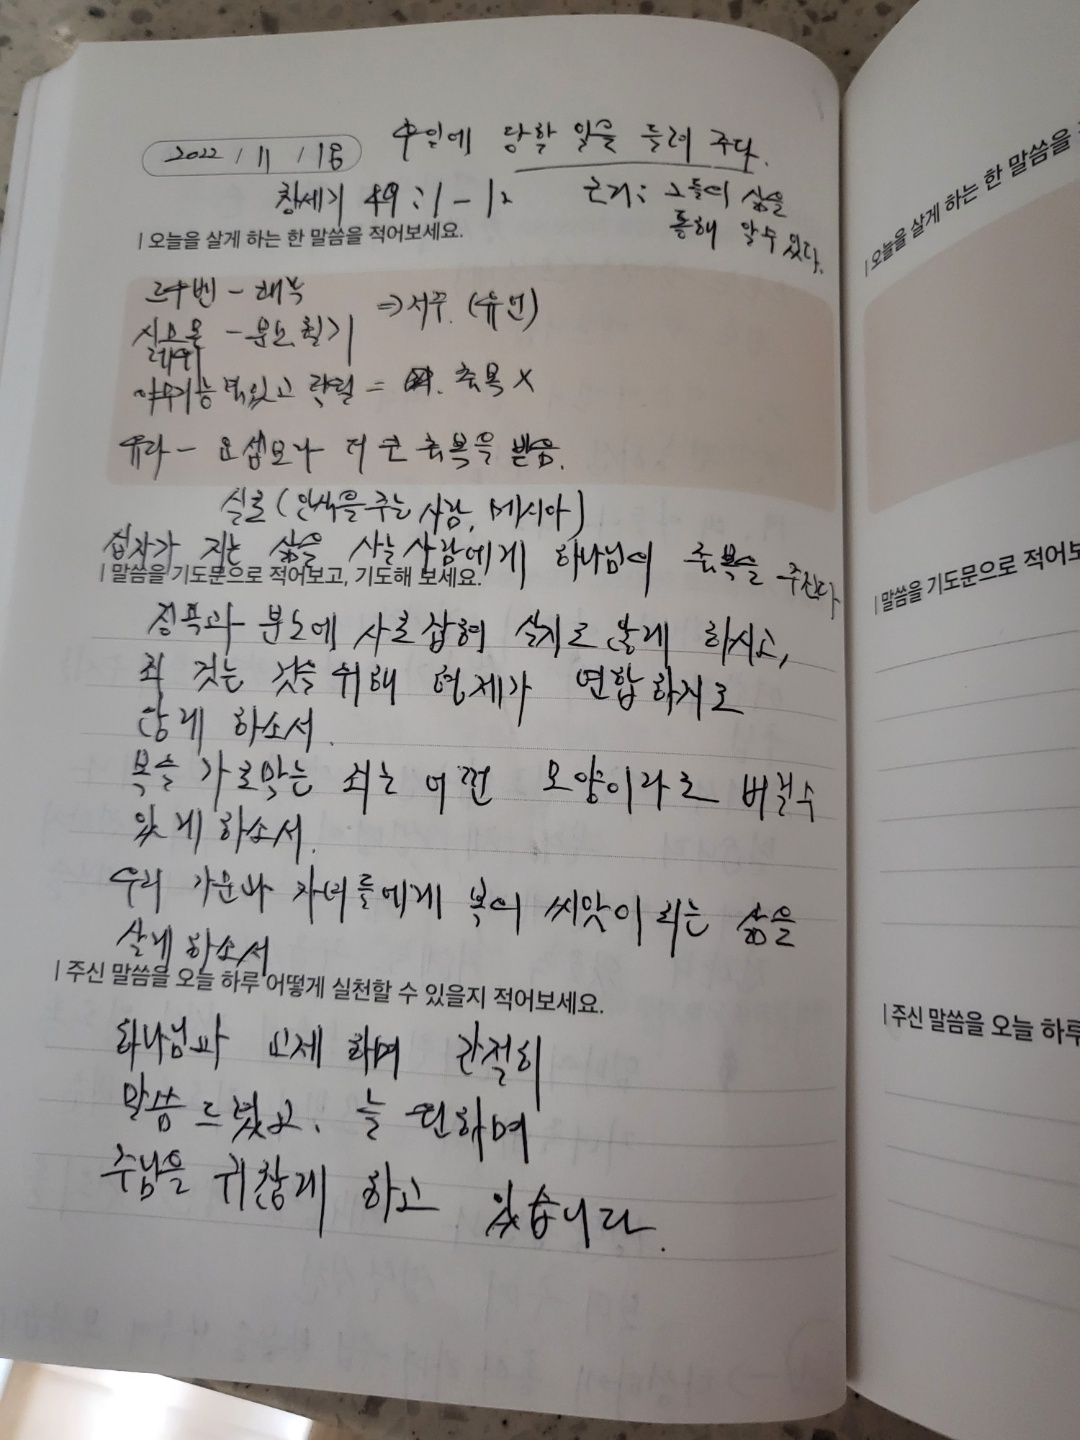 2022 / 11 / 18
후일에 당할 일을 들려 주다.
창세기 49:1-12
근거: 그들의 삶을
통해 알 수 있다.
| 오늘을 살게 하는 한 말씀을 적어보세요.
르우벤 -
시므온
레위
- 분노 혈기
⇒ 저주. (유언)
야곱 축복 X
유다 - 요셉보다 더 큰 축복을 받음.
실로 (안식을 주는 사람, 메시아)
십자가 지는 삶을 사는 사람에게 하나님의 축복을 주신다
| 말씀을 기도문으로 적어보고, 기도해 보세요.
정욕과 분노에 사로잡혀 살지 않게 하시고,
죄 짓는 것을 위해 형제가 연합하지도
않게 하소서.
복을 가로막는 죄는 어떤 모양이라도 버릴수
있게 하소서.
우리 가문과 자녀들에게 복의 씨앗이 되는 삶을
살게 하소서
| 주신 말씀을 오늘 하루 어떻게 실천할 수 있을지 적어보세요.
하나님과 교제하며 간절히
말씀드렸고. 늘 하며
주님을 귀찮게 하고 있습니다.
| 오늘을 살게 하는 한 말씀을
| 말씀을 기도문으로 적어보
| 주신 말씀을 오늘 하루